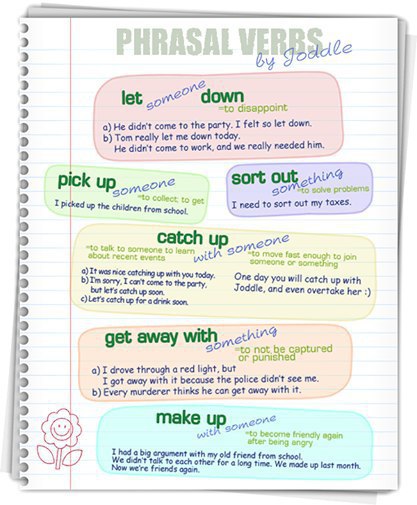 PHRASAL VERBS
by Joddle
let someone down
=to disappoint
a) He didn't come to the party. I felt so let down.
b) Tom really let me down today.
He didn't come to work, and we really needed him.
pick up someone
=to collect; to get
I picked up the children from school.
sort out something
=to solve problems
I need to sort out my taxes.
catch up with someone
=to talk to someone to learn
about recent events
a) It was nice catching up with you today.
b) I'm sorry, I can't come to the party,
but let's catch up soon.
c) Let's catch up for a drink soon.
=to move fast enough to join
someone or something
One day you will catch up with
Joddle, and even overtake her :)
get away with something
=to not be captured
or punished
a) I drove through a red light, but
I got away with it because the police didn't see me.
b) Every murderer thinks he can get away with it.
make up with someone
=to become friendly again
after being angry
I had a big argument with my old friend from school.
We didn't talk to each other for a long time. We made up last month.
Now we're friends again.